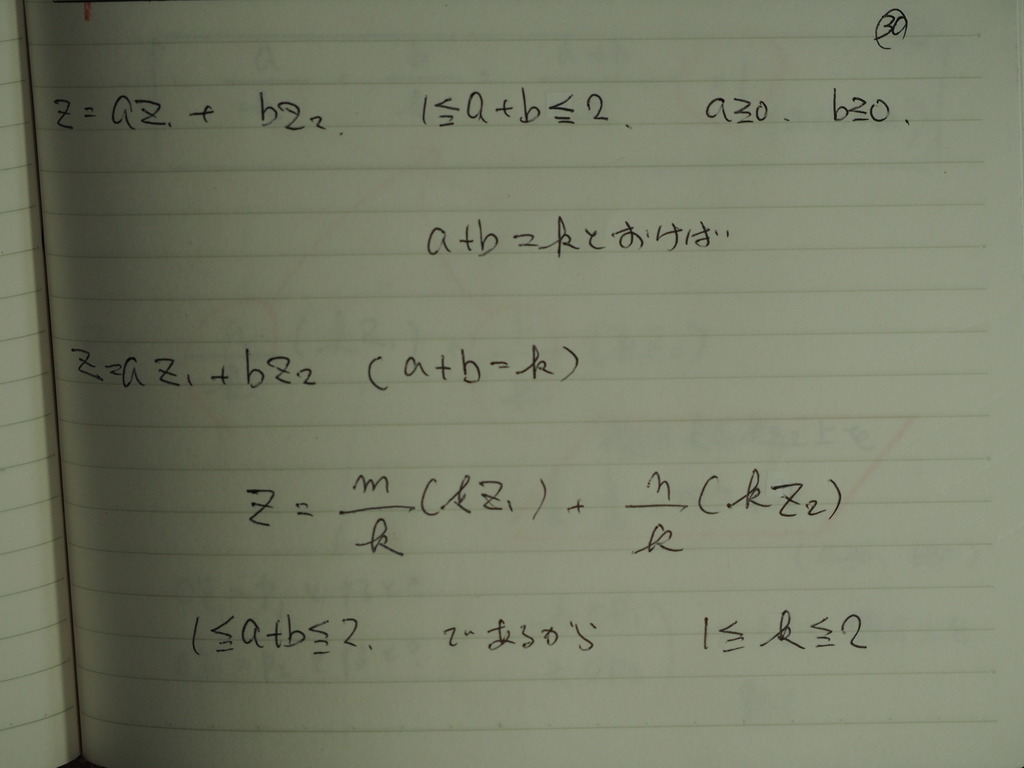 ㉚
z=az₁ + bz₂. 1≦a+b≦2. a≧0. b≧0.
a+b=kとおけば
z=az₁+bz₂ (a+b=k)
z= m/k (kz₁) + n/k (kz₂)
1≦a+b≦2. であるから 1≦k≦2